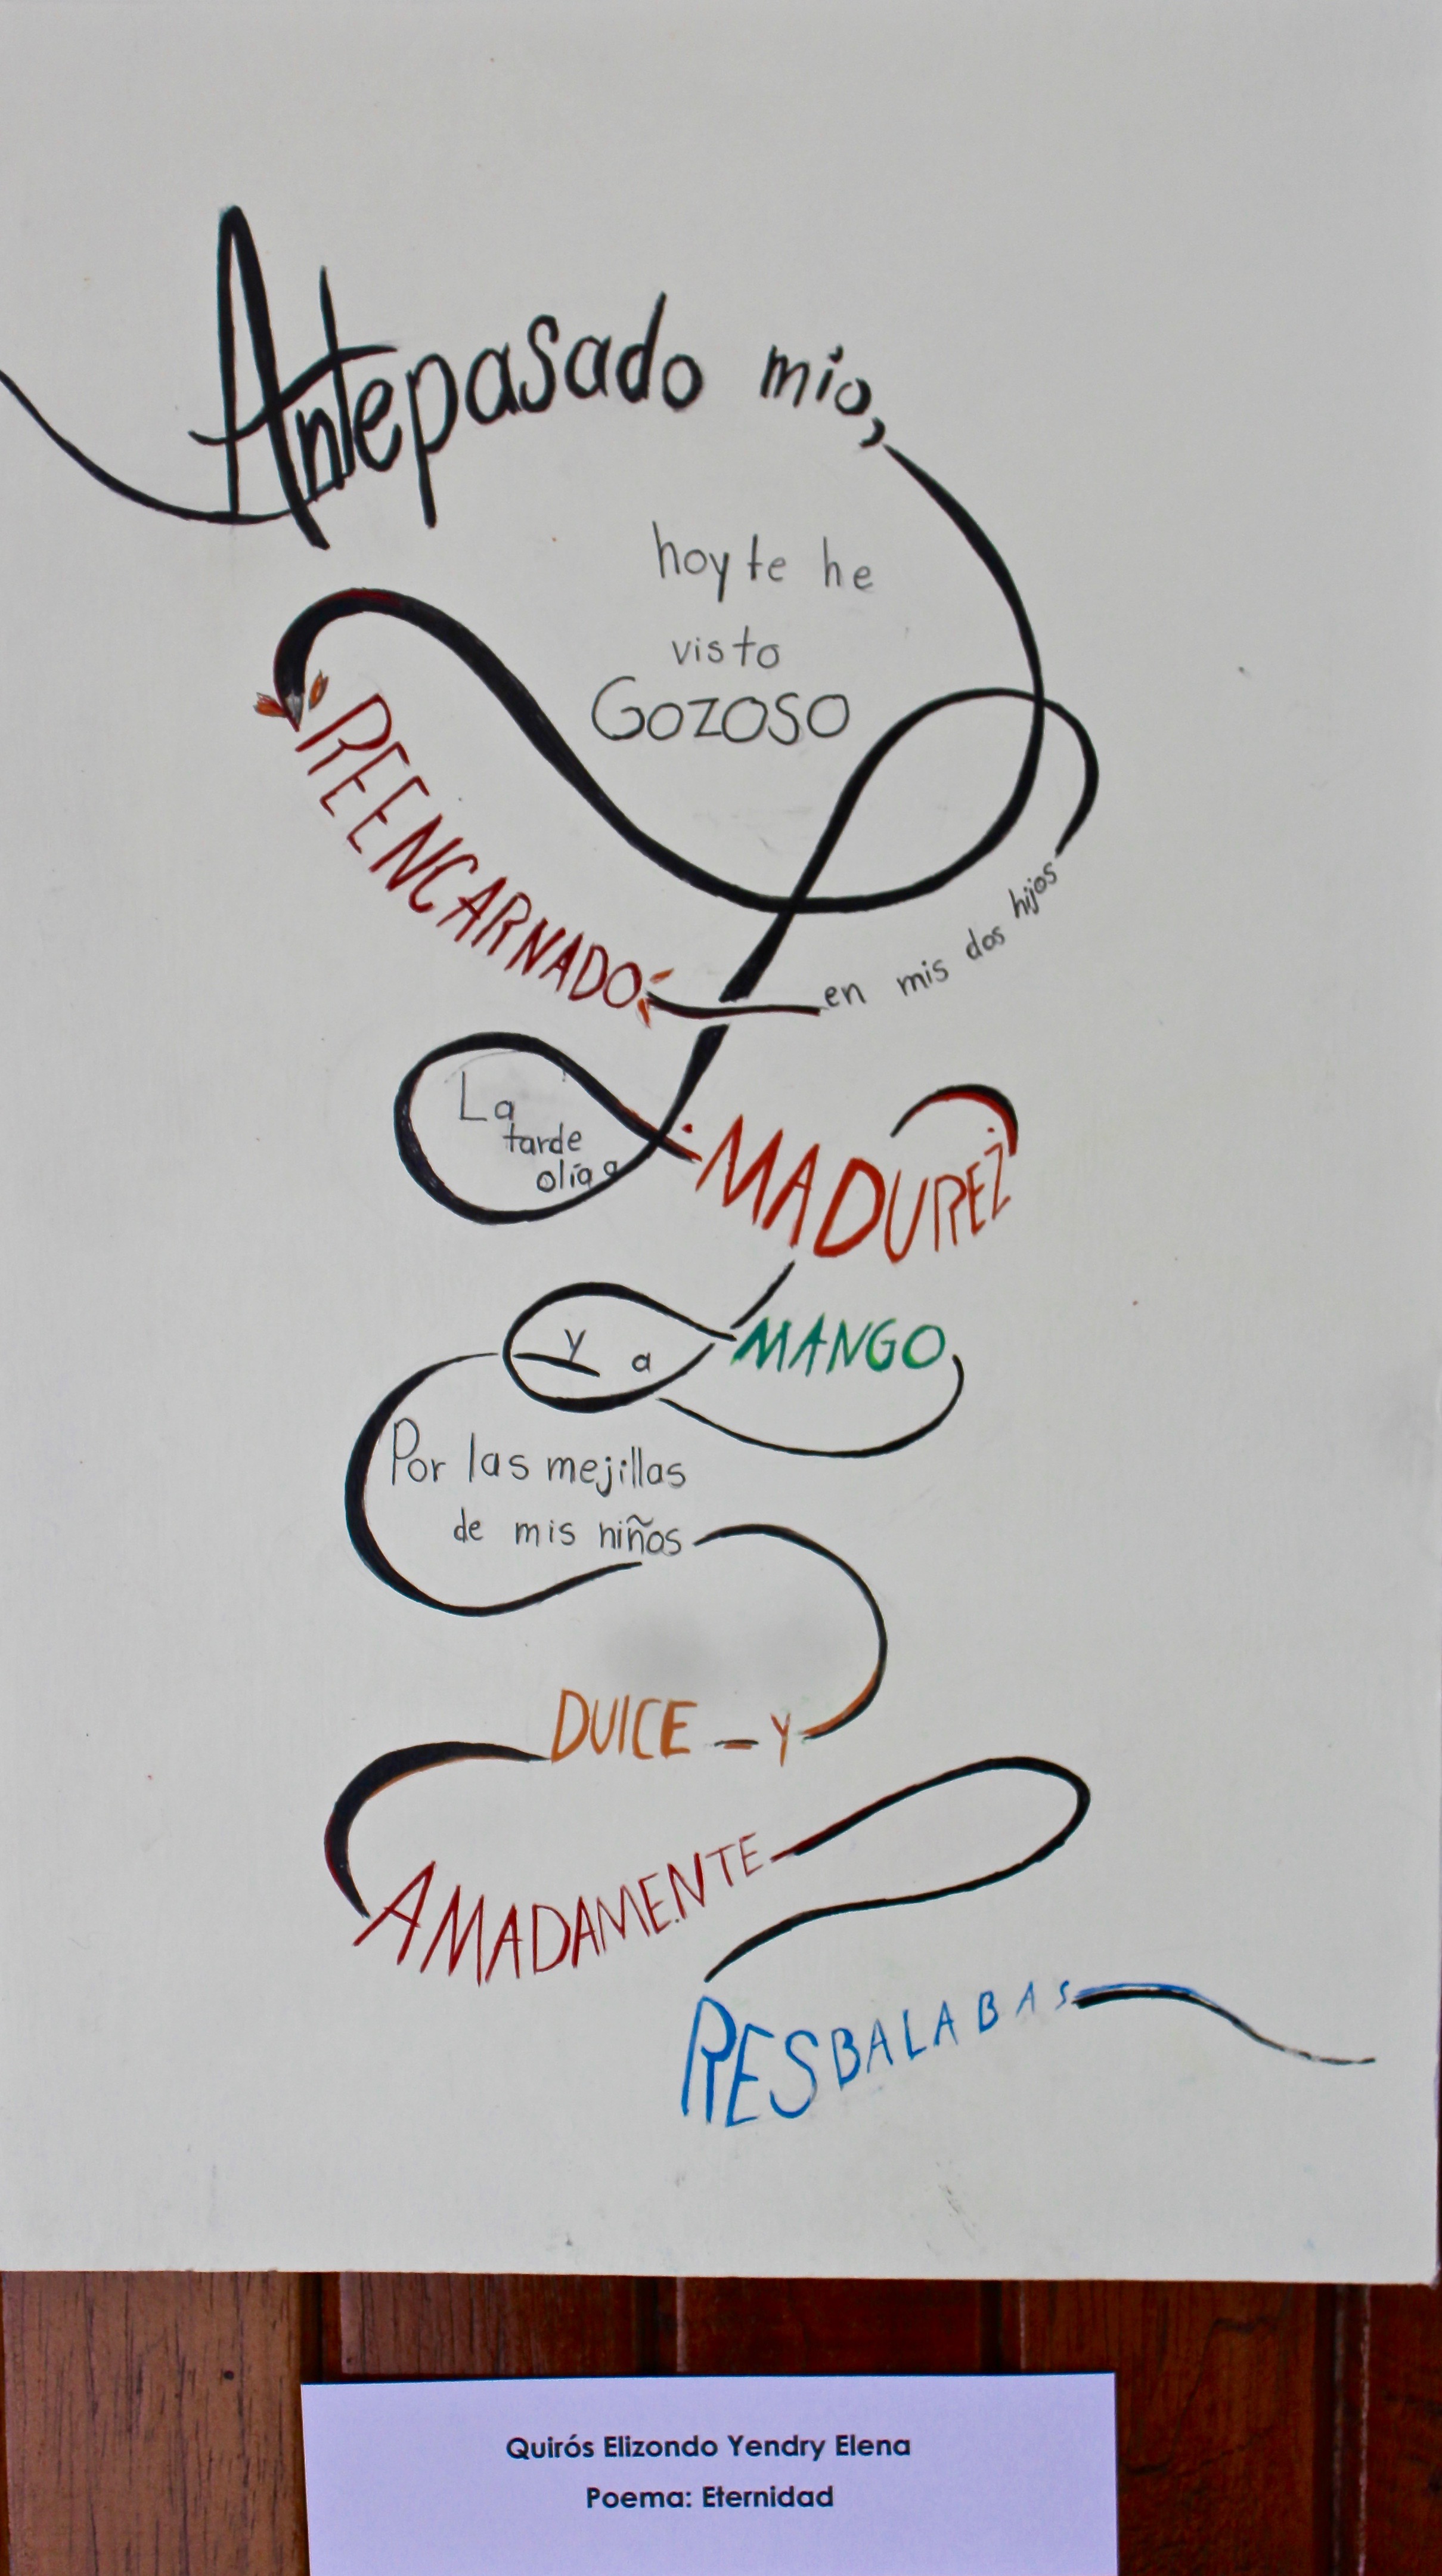 Antepasado mío,
hoy te he
visto
GOZOSO
REENCARNADO
en mis dos hijos
La
tarde
olía a
MADUREZ
y a
MANGO
Por las mejillas
de mis niños
DULCE - Y
AMADAMENTE
RESBALABAS
Quirós Elizondo Yendry Elena
Poema: Eternidad